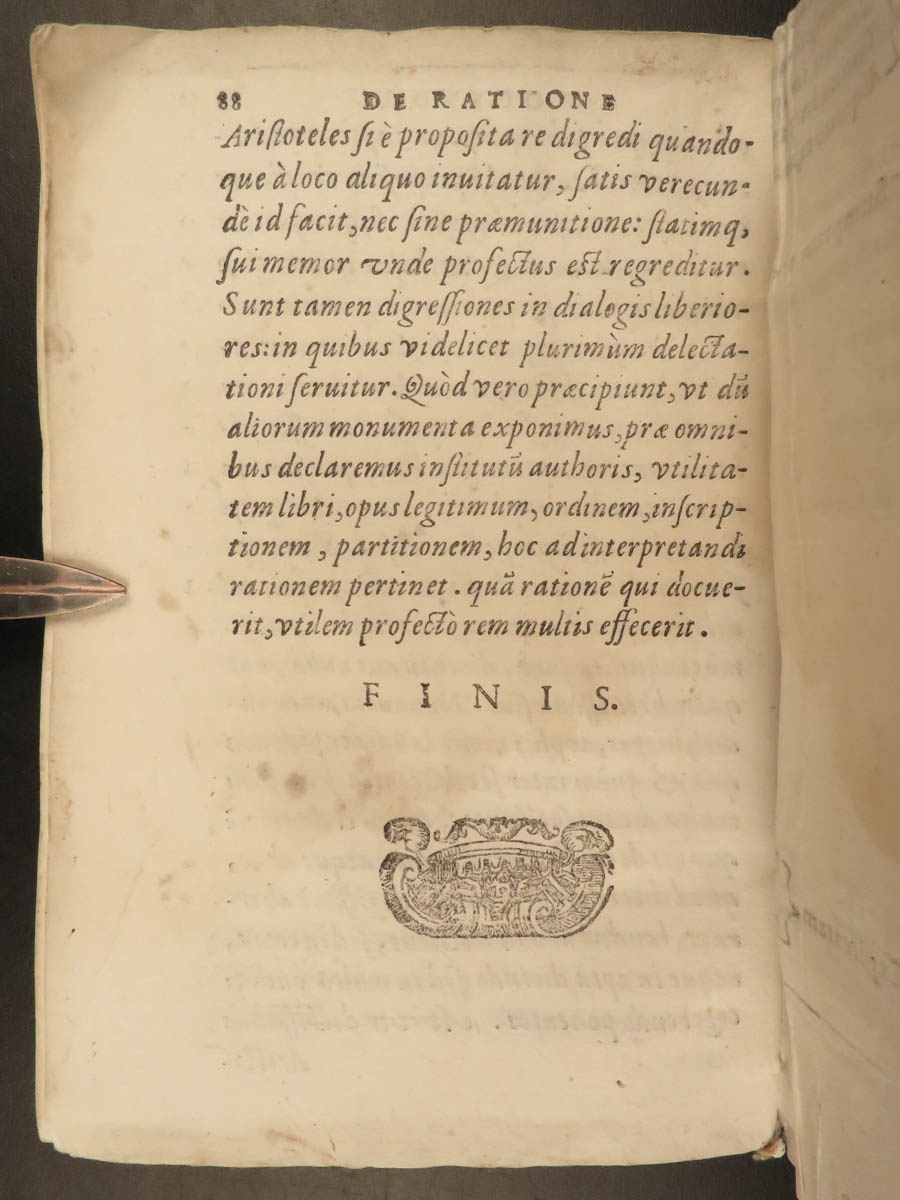 88 DE RATIONE
Aristoteles si è proposita re digredi quando-
que à loco aliquo inuitatur, satis verecun-
dè id facit, nec sine præmunitione: statimq,
sui memor vnde profectus est regreditur.
Sunt tamen digressiones in dialogis liberio-
res: in quibus videlicet plurimùm delecta-
tioni seruitur. Quòd vero præcipiunt, vt dū
aliorum monumenta exponimus, præ omni-
bus declaremus institutū authoris, vtilita-
tem libri, opus legitimum, ordinem, inscrip-
tionem, partitionem, hoc ad interpretandi
rationem pertinet. quā rationē qui docue-
rit, vtilem profectò rem multis effecerit.
FINIS.